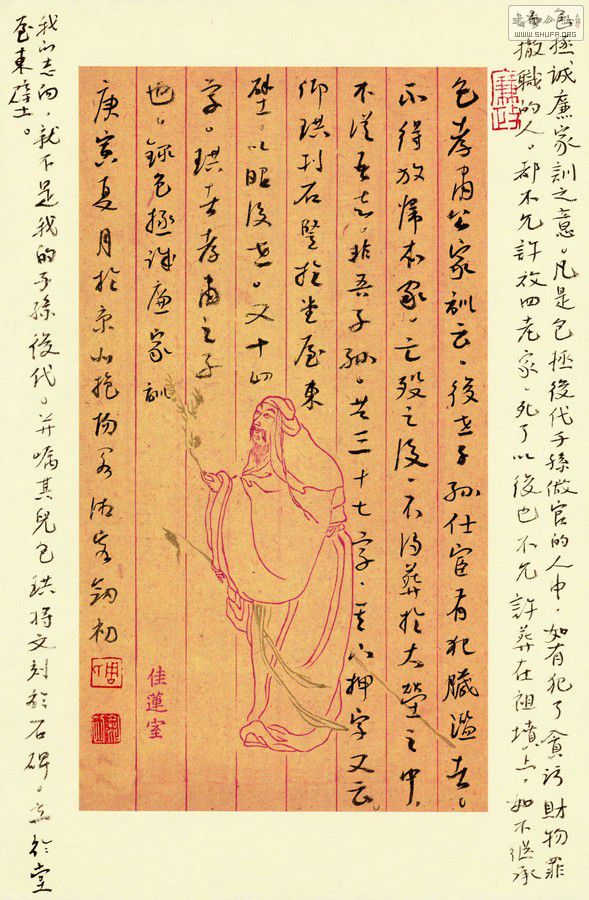 WWW.SHUFA.ORG
包拯誡廉家訓之意。凡是包拯後代子孫做官的人中，如有犯了貪污財物罪
撤職的人。都不允許放回老家，死了以後也不允許葬在祖墳上，如不繼承
廉政
包孝肅公家訓云。後世子孫仕宦有犯臟濫者。
不得放歸本家。亡歿之後。不得葬於大塋之中。
不從吾志。非吾子孫。共三十七字。其下押字又云。
仰珙刊石竪於堂屋東
壁。以昭後世。又十四
字。珙者孝肅之子
也。錄包拯誡廉家訓
庚寅夏月於京 客劍初
佳蓮室
我的志向，就不是我的子孫後代。并囑其兒包珙將文刻於石碑。立於堂
屋東壁上。